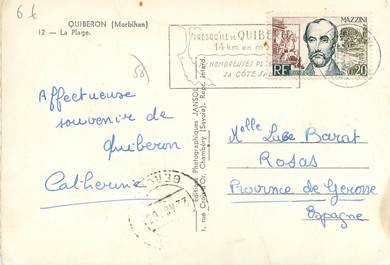 6 €
QUIBERON (Morbihan)
12 — La Plage.
PRESQU'ILE de QUIBERON
14 km en mer
NOMBREUSES PLAGES
SA CÔTE SAUVAGE
MAZZINI
RF
0,20
Affectueuse
souvenir de
Quiberon
Catherine
Edition Photographiques JANSOL
1, rue Croix-d'Or, Chambéry (Savoie). Repr. interd.
Melle Luce Barat
Rosas
Province de Gerone
Espagne